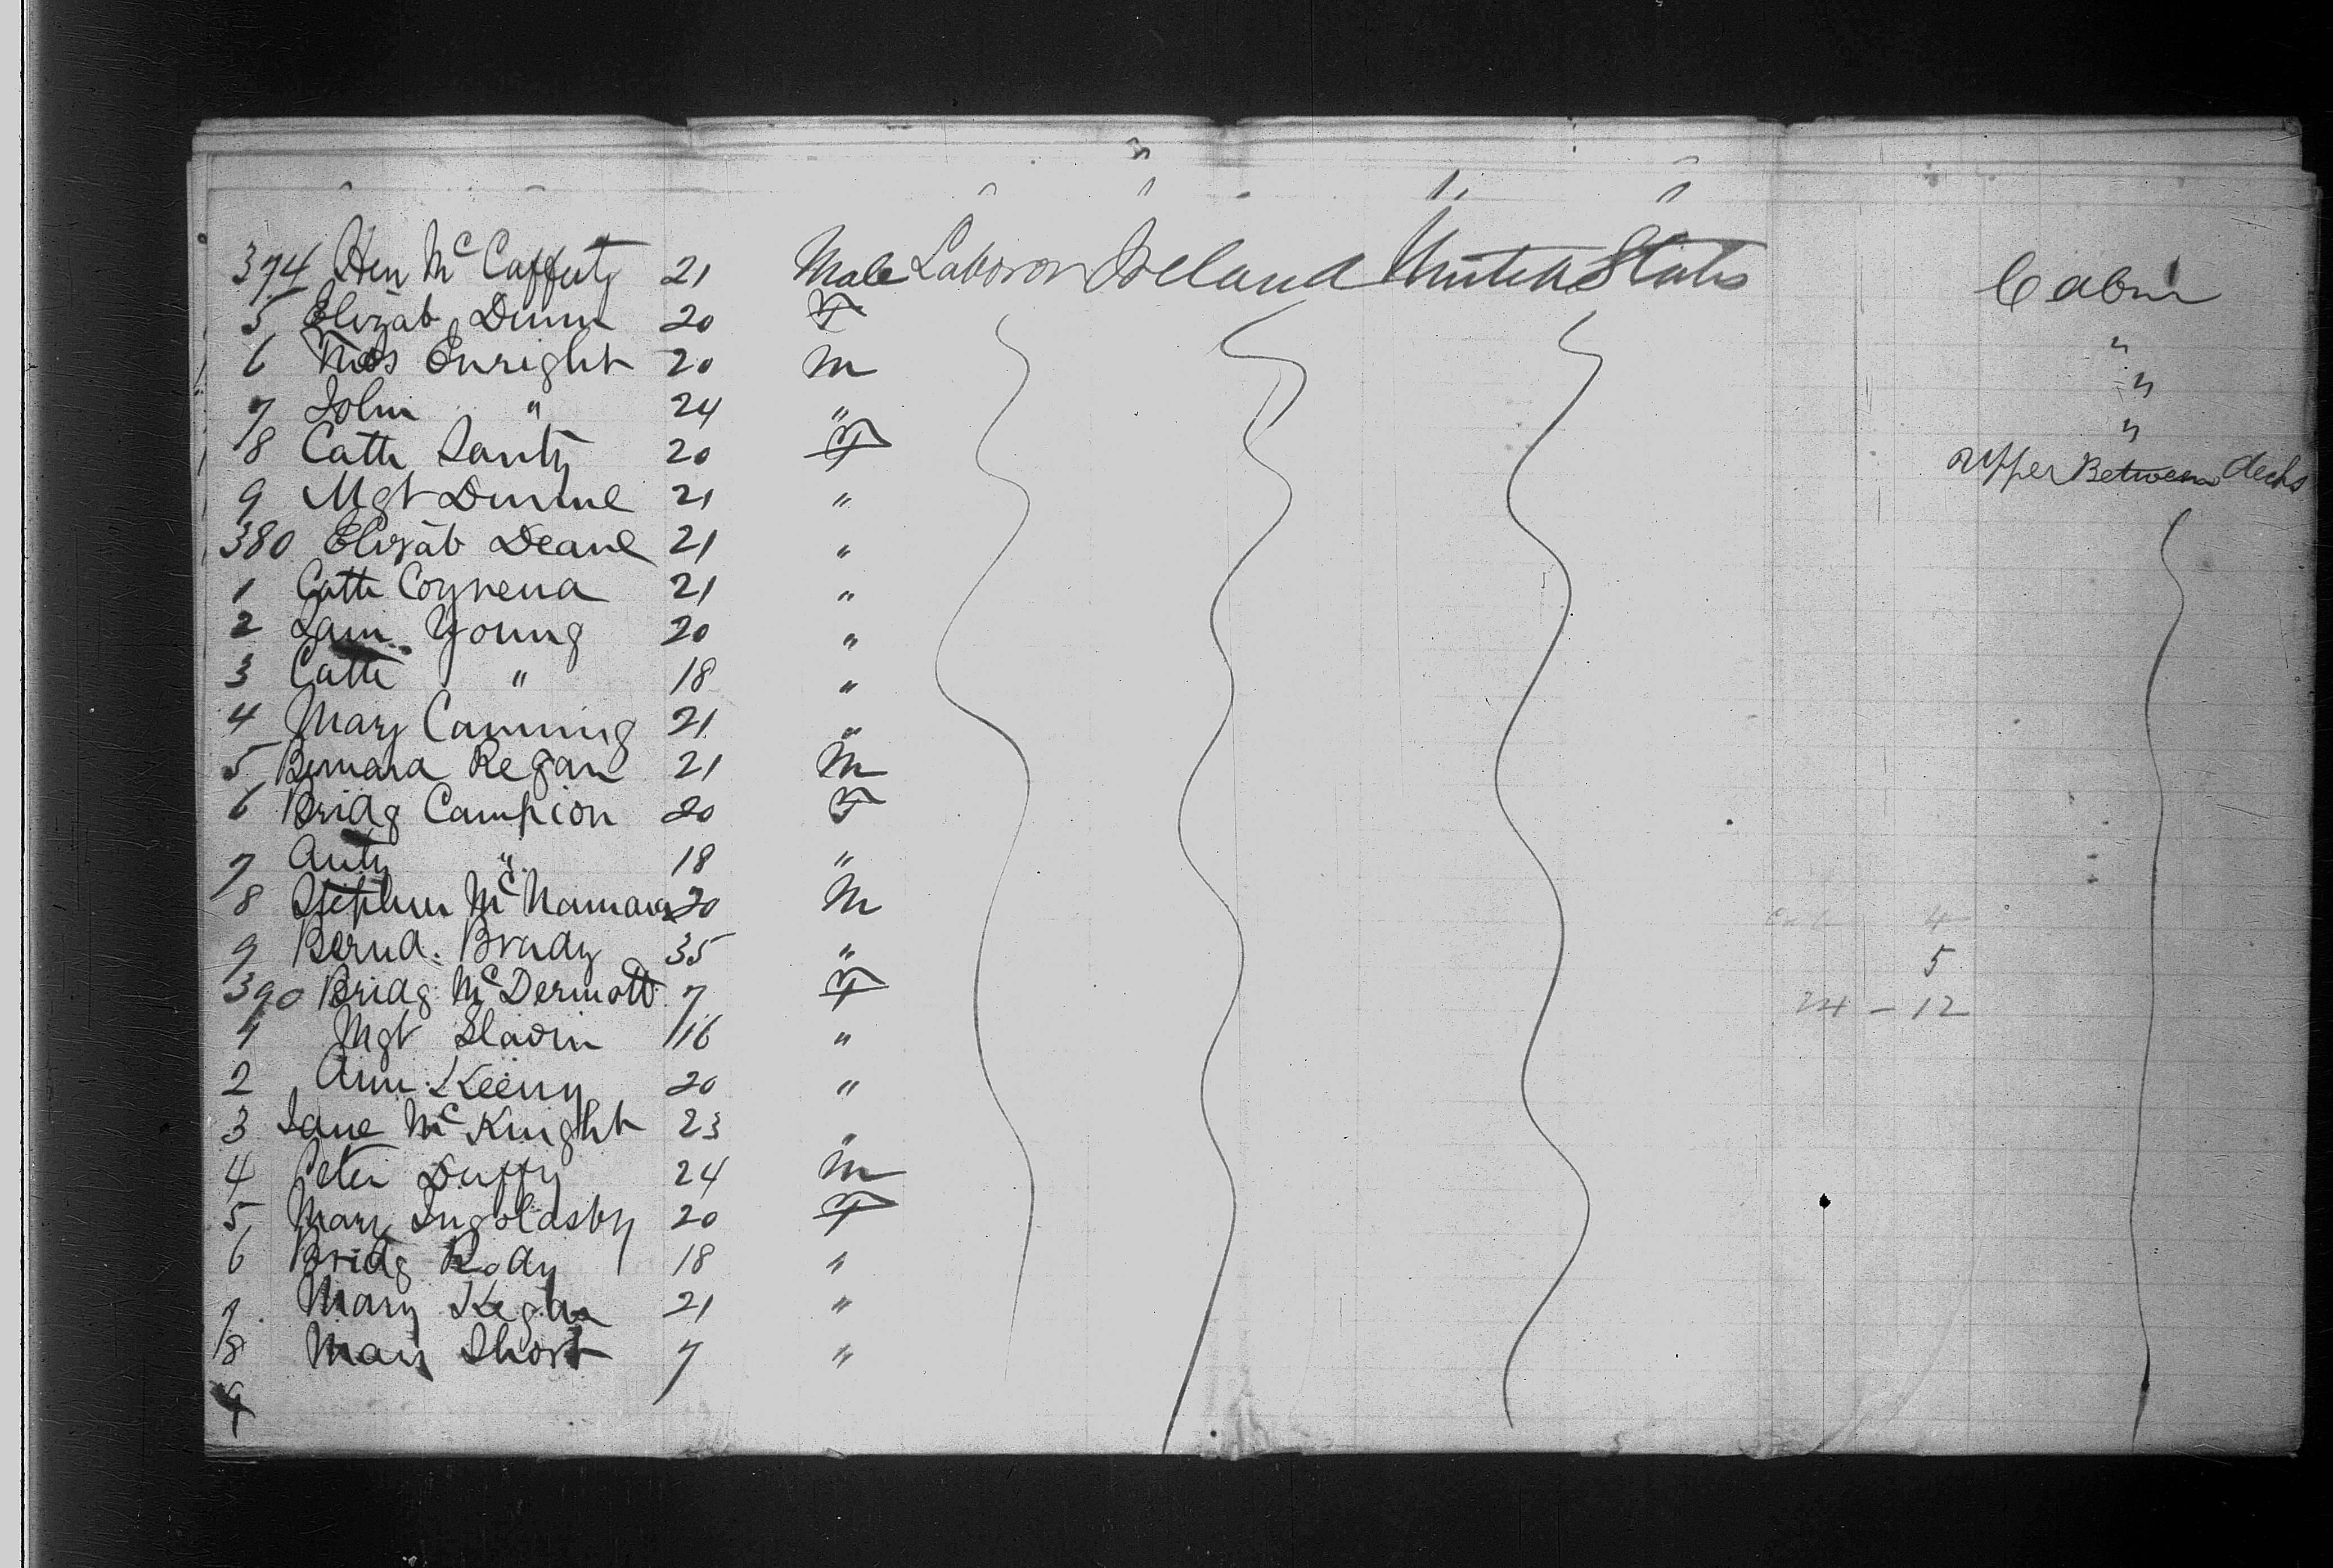 374 Hen McCafferty 21 Male Laboror Ireland United States Cabin
5 Elizab Dunn 20 F "
6 Thos Enright 20 M "
7 John " 24 " "
8 Cath 20 F Upper Between decks
9 Mgt Dunne 21 "
380 Elizab Deane 21 "
1 Cath 21 "
2 Young 20 "
3 Cath " 18 "
4 Mary Canning 21 "
5 Bernard Regan 21 M
6 Bridg Campion 20 F
7 Anty " 18 "
8 Stephen McNamara 20 M
9 Bernd. Brady 35 "
390 Bridg McDermott 7 F
1 Mgt Slavin 16 "
2 Ann Keeny 20 "
3 Jane McKnight 23 "
4 Peter Duffy 24 M
5 Mary Ingoldsby 20 F
6 Bridg Rody 18 "
7 Mary 21 "
8 Mary Short 7 "
9
4
5
24 - 12